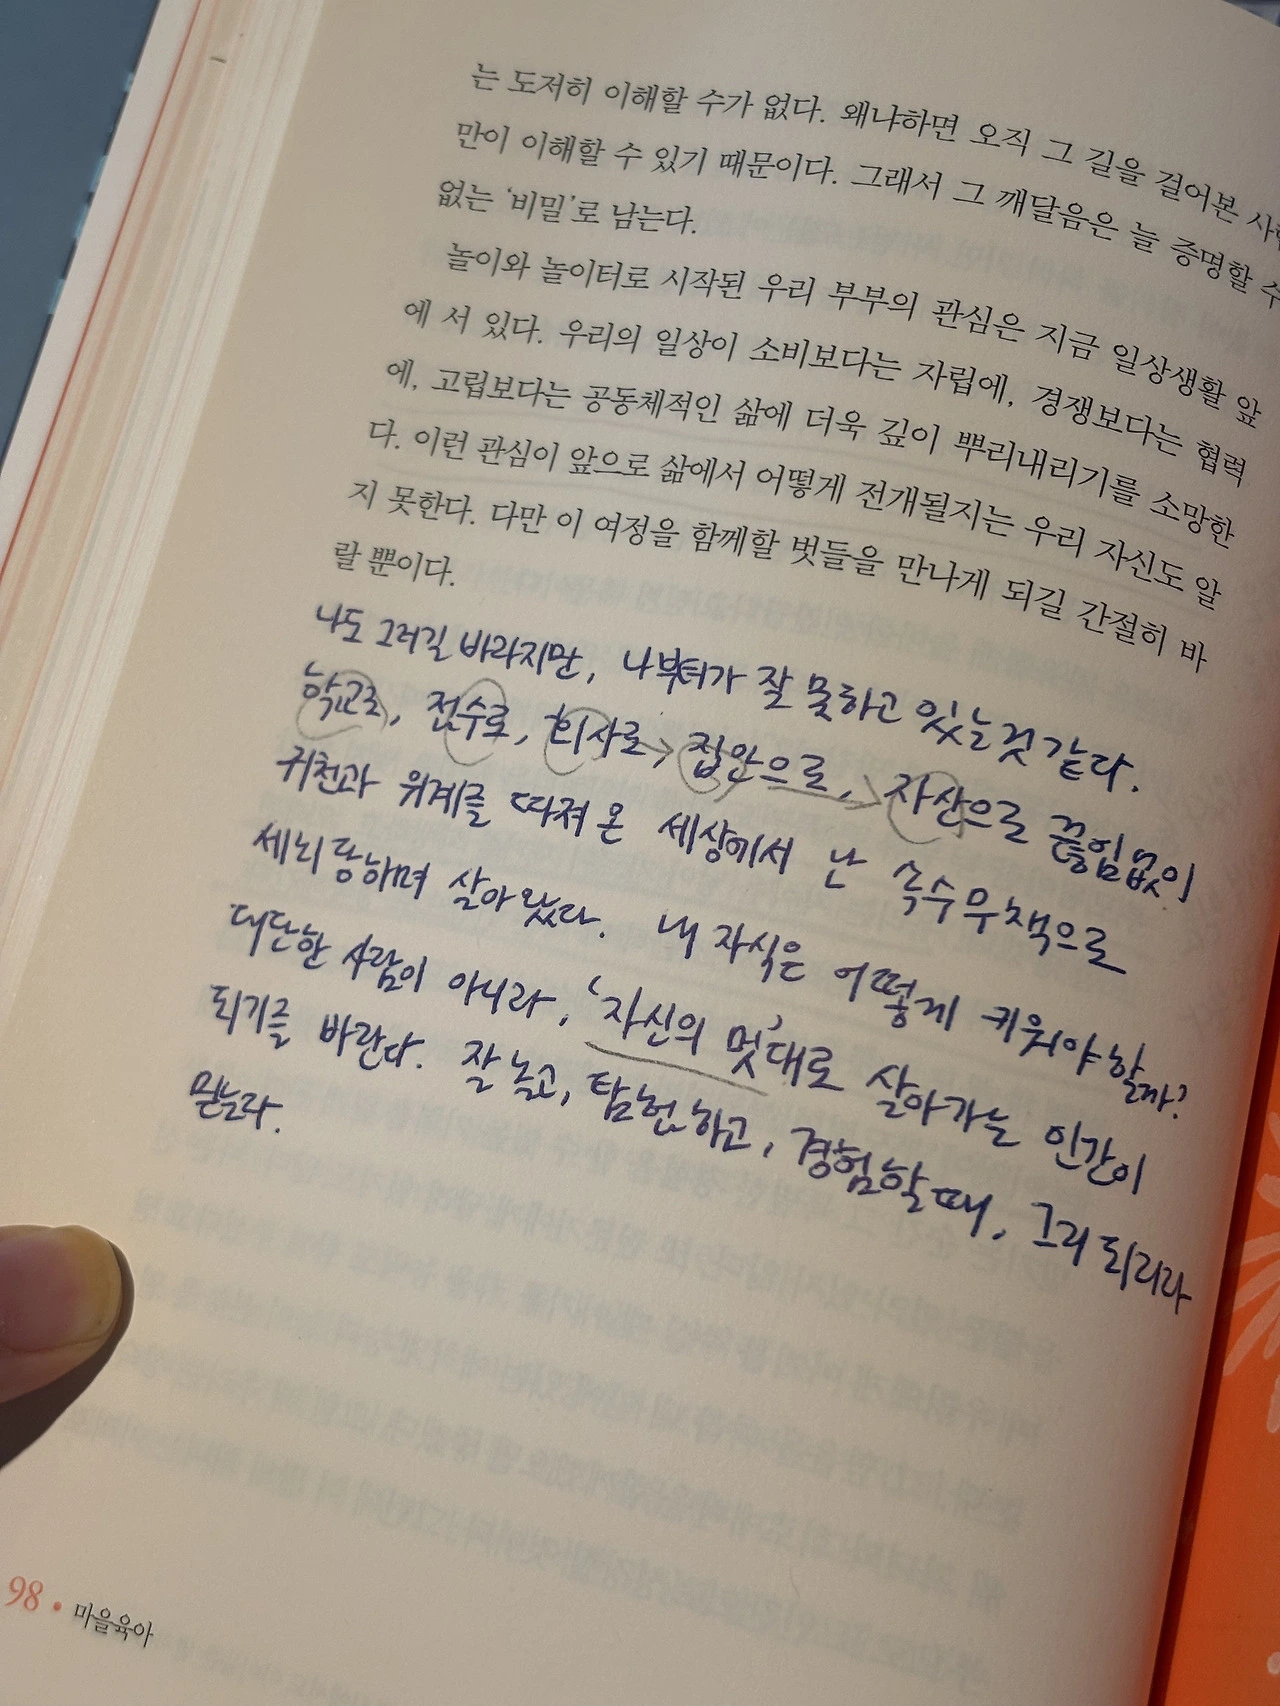 는 도저히 이해할 수가 없다. 왜냐하면 오직 그 길을 걸어본 사
만이 이해할 수 있기 때문이다. 그래서 그 깨달음은 늘 증명할 수
없는 ‘비밀’로 남는다.
놀이와 놀이터로 시작된 우리 부부의 관심은 지금 일상생활 앞
에 서 있다. 우리의 일상이 소비보다는 자립에, 경쟁보다는 협력
에, 고립보다는 공동체적인 삶에 더욱 깊이 뿌리내리기를 소망한
다. 이런 관심이 앞으로 삶에서 어떻게 전개될지는 우리 자신도 알
지 못한다. 다만 이 여정을 함께할 벗들을 만나게 되길 간절히 바
랄 뿐이다.
나도 그러길 바라지만, 나부터가 잘 못하고 있는것 같다.
학교로, 점수로, 회사로, 집안으로, 자산으로 끊임없이
귀천과 위계를 따져 온 세상에서 난 속수무책으로
세뇌당하며 살아왔다. 내 자식은 어떻게 키워야할까?
대단한 사람이 아니라, ‘자신의 멋’대로 살아가는 인간이
되기를 바란다. 잘 놀고, 탐험하고, 경험할 때, 그리 되리라
믿는다.
98 • 마을육아